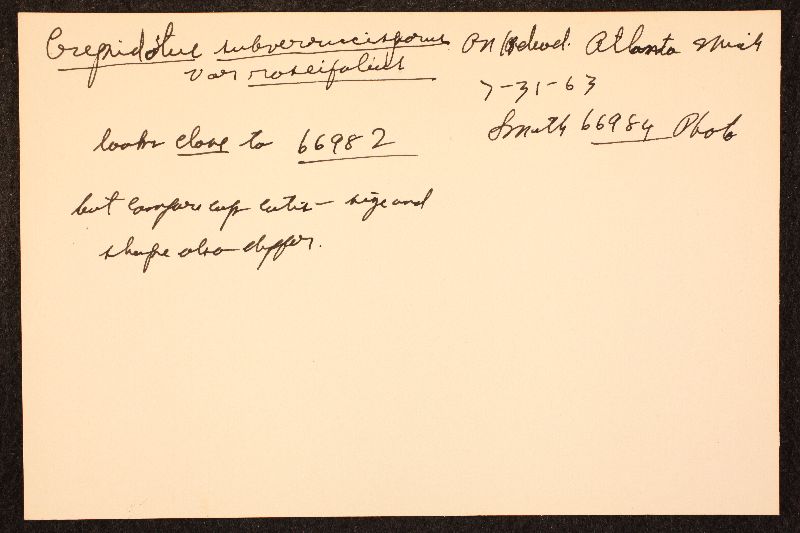 Crepidotus subverrucisporus
var roseifolius
On hdwd. Atlanta Mich
7-31-63
Smith 66984 Photo
looks close to 66982
but compare cap cutis – size and
shape also differ.